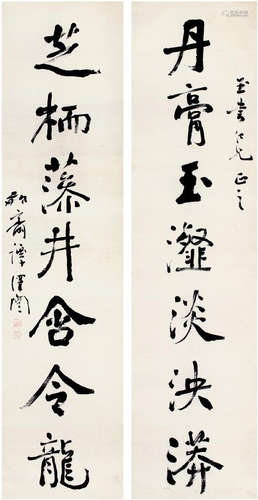 丹膏玉瀣淡泱漭
仁兄正之
芝栭藻井含令龍
瓶齋譚澤闓